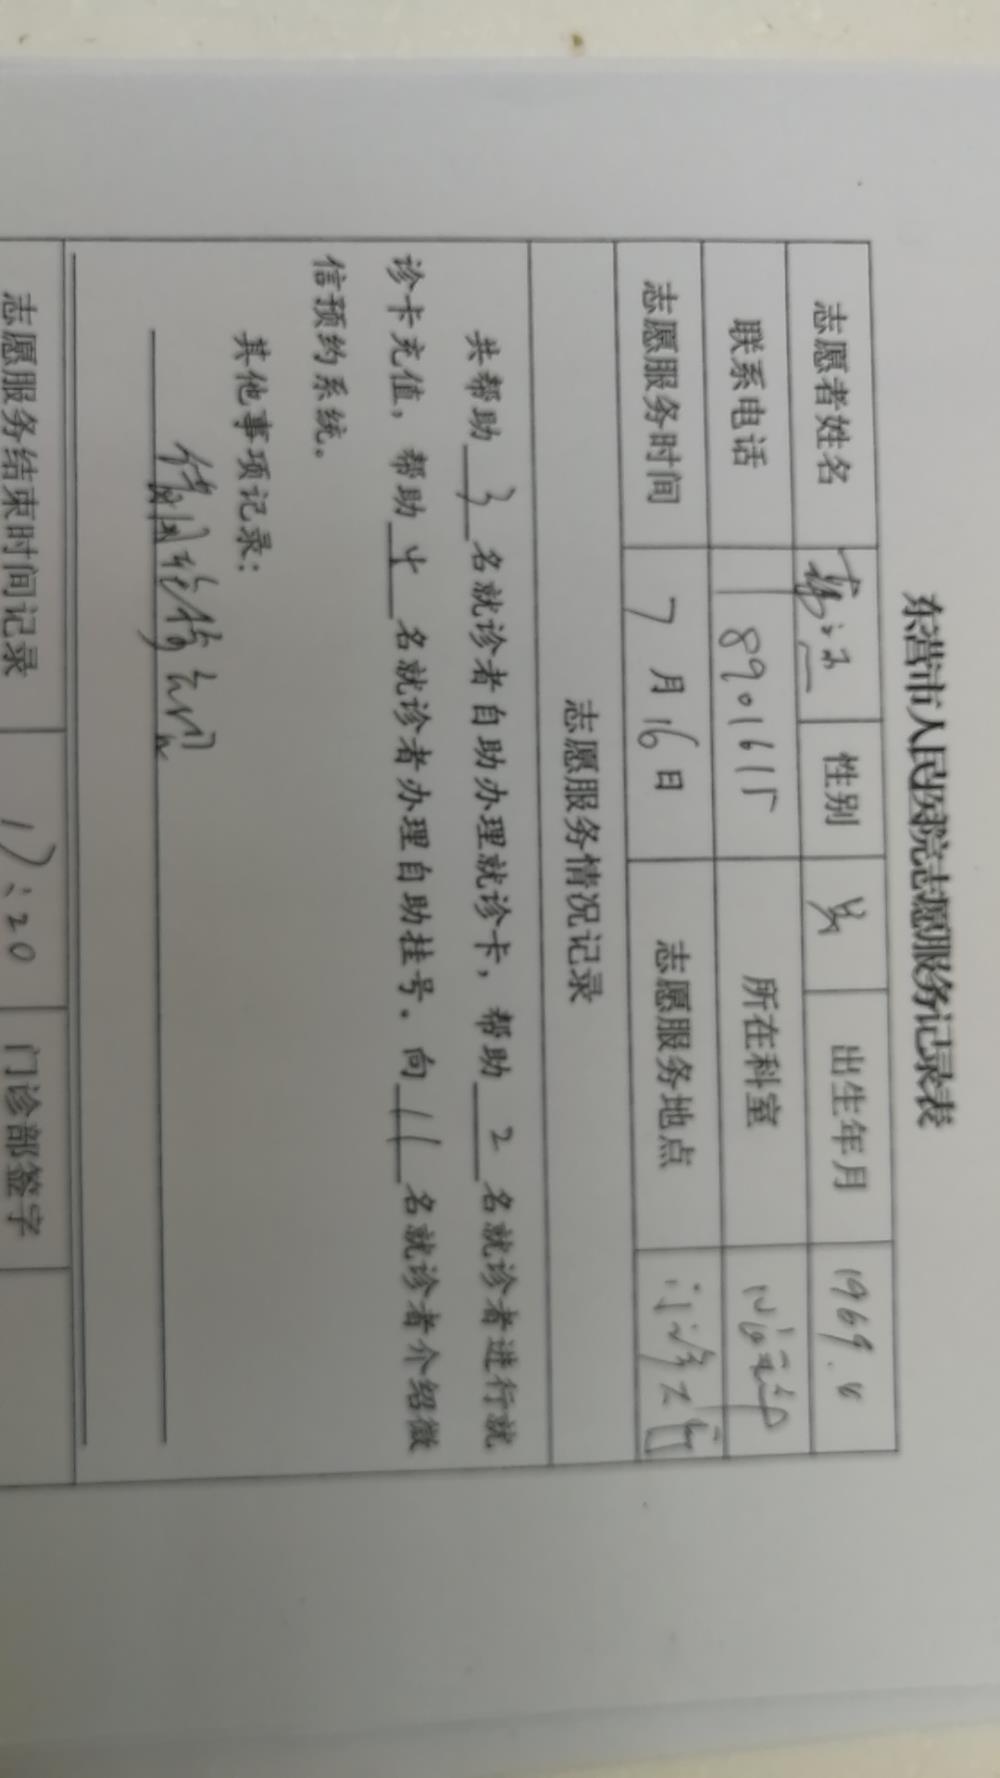 东营市人民医院志愿服务记录表
志愿者姓名 性别 男 出生年月 1969.
联系电话 8901611 所在科室
志愿服务时间 7月16日 志愿服务地点 门诊大厅
志愿服务情况记录
共帮助 3 名就诊者自助办理就诊卡，帮助 2 名就诊者进行就
诊卡充值，帮助 4 名就诊者办理自助挂号。向 11 名就诊者介绍微
信预约系统。
其他事项记录：
志愿服务结束时间记录 17:20 门诊部签字